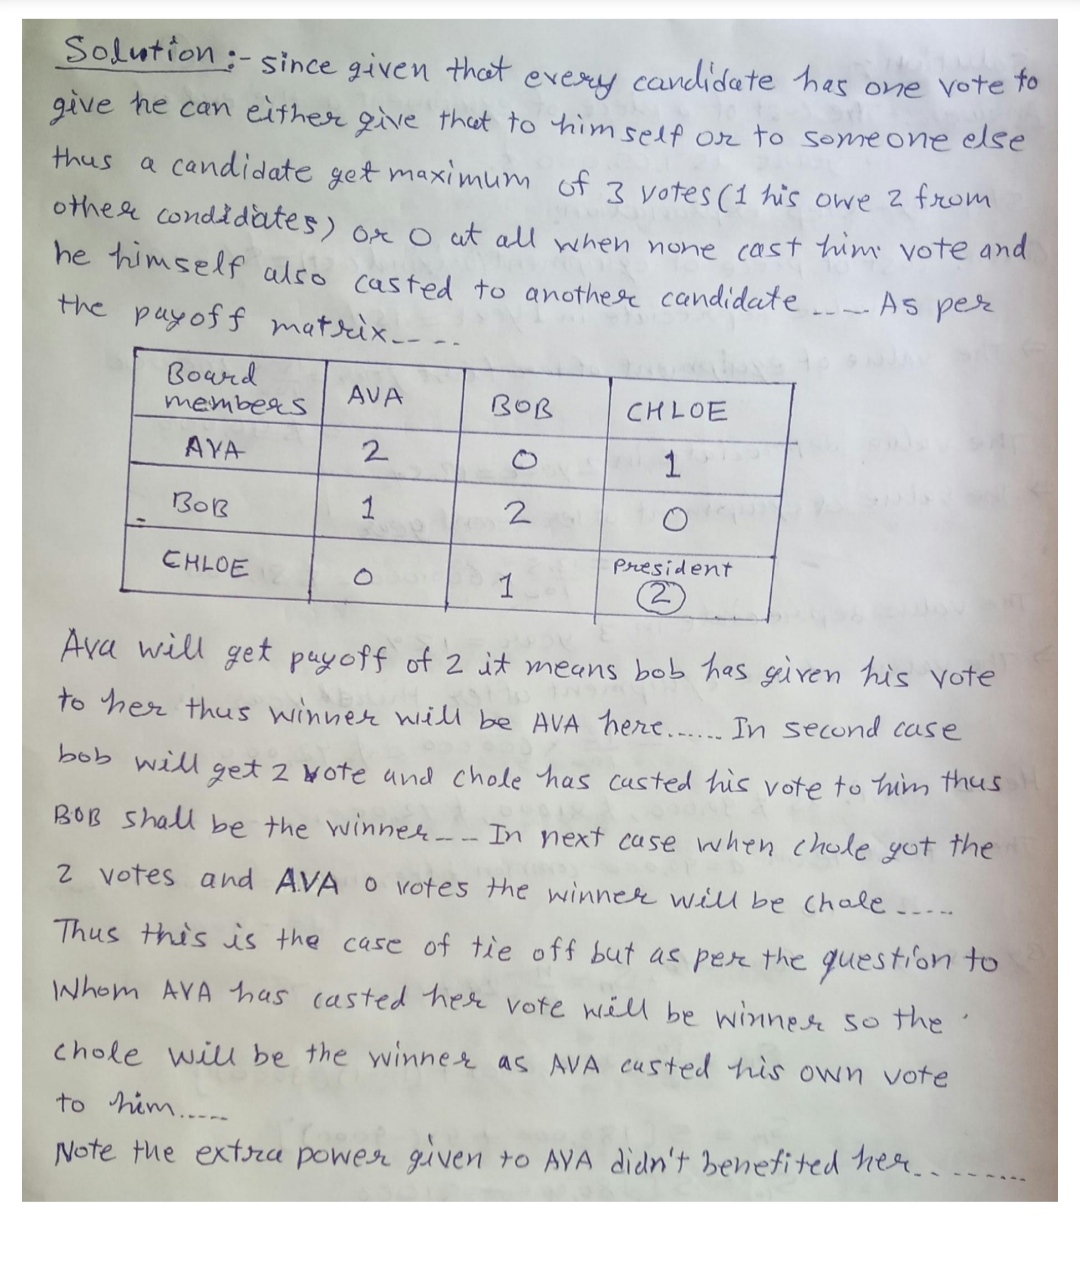 Solution :- since given that every candidate has one vote to
give he can either give that to himself or to someone else
thus a candidate get maximum of 3 votes (1 his owe 2 from
other condidates) or 0 at all when none cast him vote and
he himself also casted to another candidate ..... As per
the payoff matrix.....
Board members AVA BOB CHLOE
AVA 2 0 1
BOB 1 2 0
CHLOE 0 1 President 2
Ava will get payoff of 2 it means bob has given his vote
to her thus winner will be AVA here...... In second case
bob will get 2 vote and chole has casted his vote to him thus
BOB shall be the winner--- In next case when chole got the
2 votes and AVA 0 votes the winner will be chole .....
Thus this is the case of tie off but as per the question to
Whom AVA has casted her vote will be winner so the
chole will be the winner as AVA casted his own vote
to him.....
Note the extra power given to AVA didn't benefited her.........